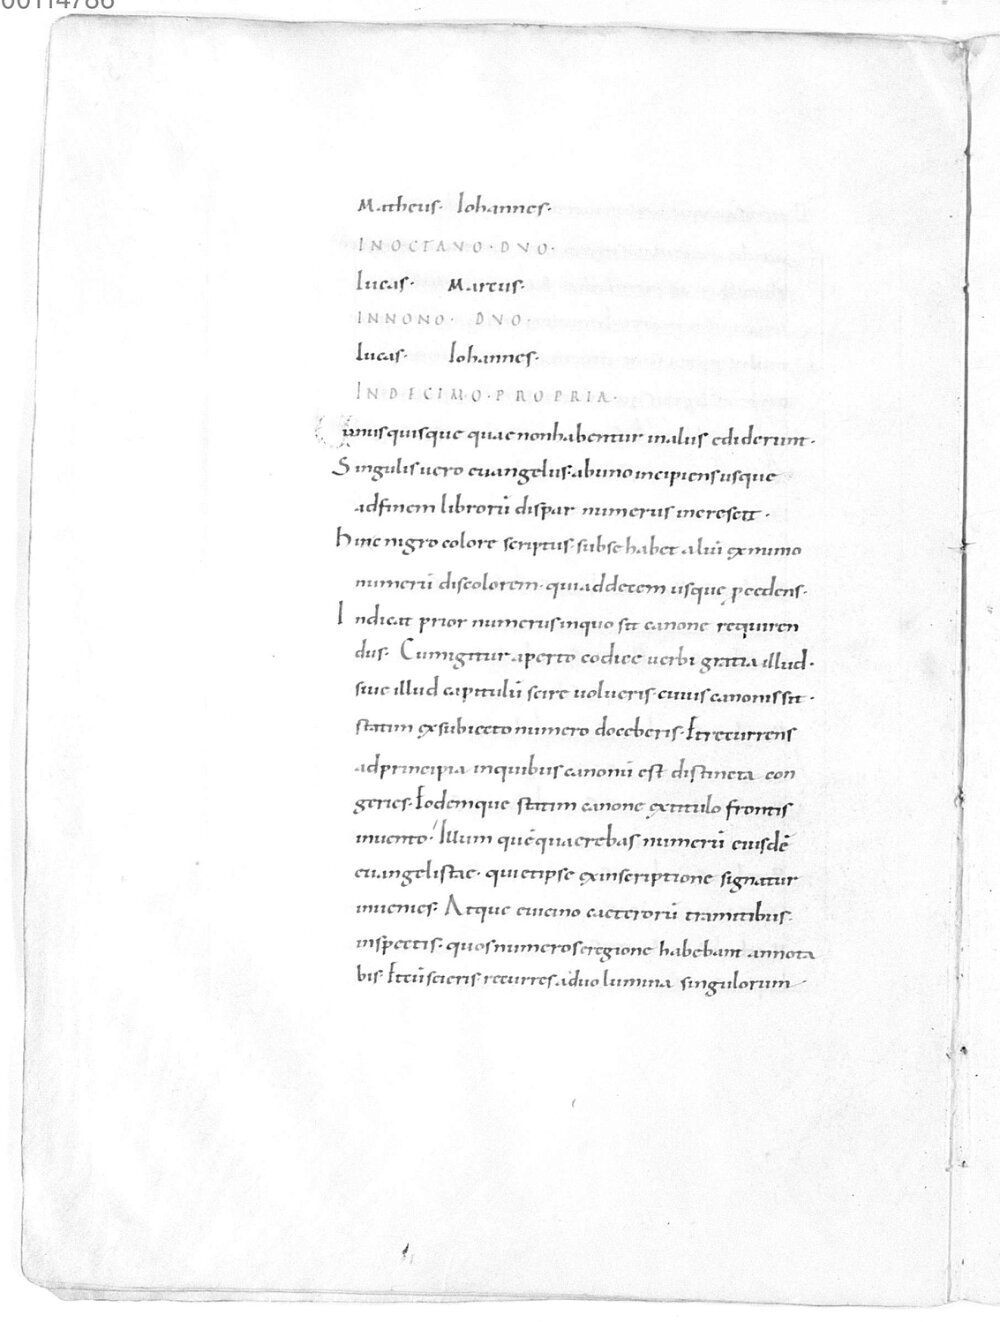 00114786
Matheus· Iohannes·
INOCTAVO·DVO·
lucas· Marcus·
INNONO· DVO·
lucas· Iohannes·
INDECIMO·PROPRIA·
unusquisque quae nonhabentur inaliis ediderunt·
Singulis uero euangeliis·abunoincipiensusque
adfinem librorū dispar numerus increscit·
hinc nigro colore scriptus·subse habet aliū exminio
numerū discolorem·quiaddecem usque pcedens·
Indicat prior numerusinquo sit canone requiren
dus· Cumigitur aperto codice uerbi gratia illud·
siue illud capitulū scire uolueris·cuiuscanonissit·
statim exsubiectonumero doceberis·Etrecurrens
adprincipia inquibuscanonū est distincta con
geries·Eodemque statim canone extitulo frontis
inuento·Illum quēquaerebas numerū eiusdē
euangelistae· quietipse exinscriptione signatur
inuenies· Atque euicino caeterorū tramitibus·
inspectis·quosnumeroseregione habebant annota
bis·Etcūscieris·recurres aduolumina singulorum